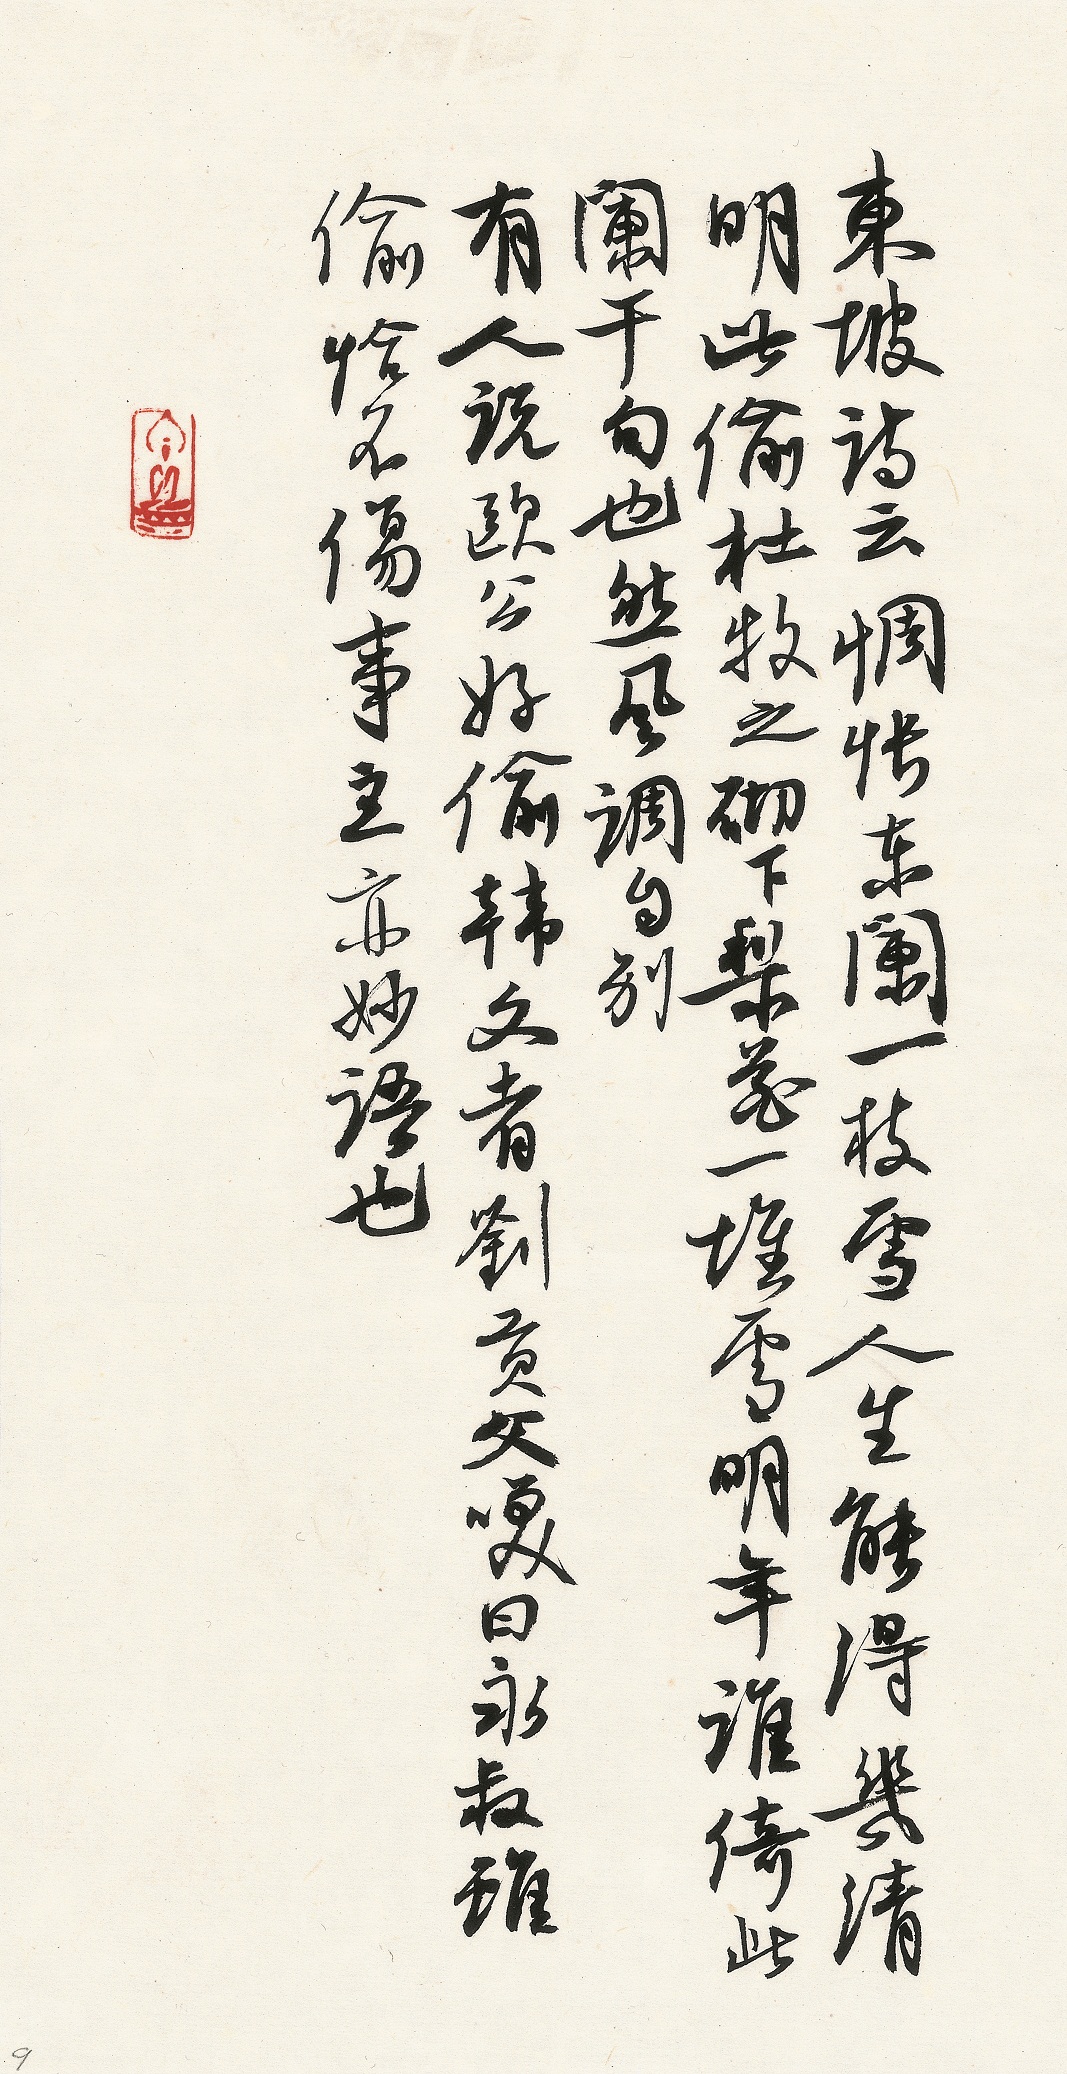 東坡詩云惆悵東闌一枝雪人生能得幾清
明此偷杜牧之砌下梨花一堆雪明年誰倚此
闌干句也然風調自別
有人說歐公好偷韓文者劉貢父笑曰永叔雖
偷恰不傷事主亦妙語也
9